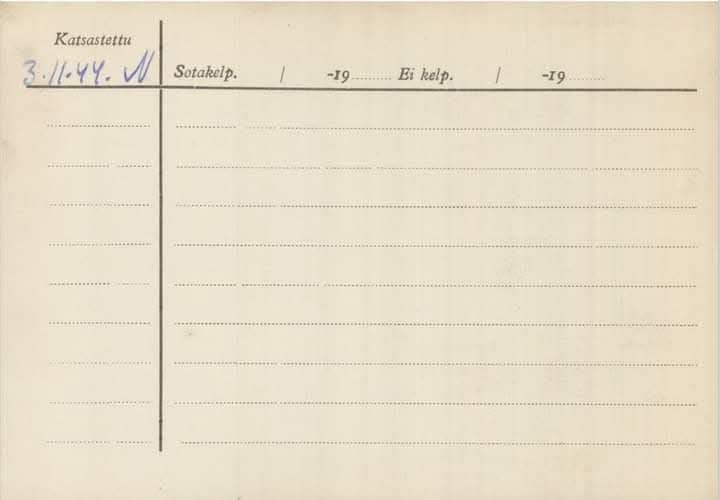 Katsastettu
3.11.44. N
Sotakelp. / -19......... Ei kelp. / -19.........